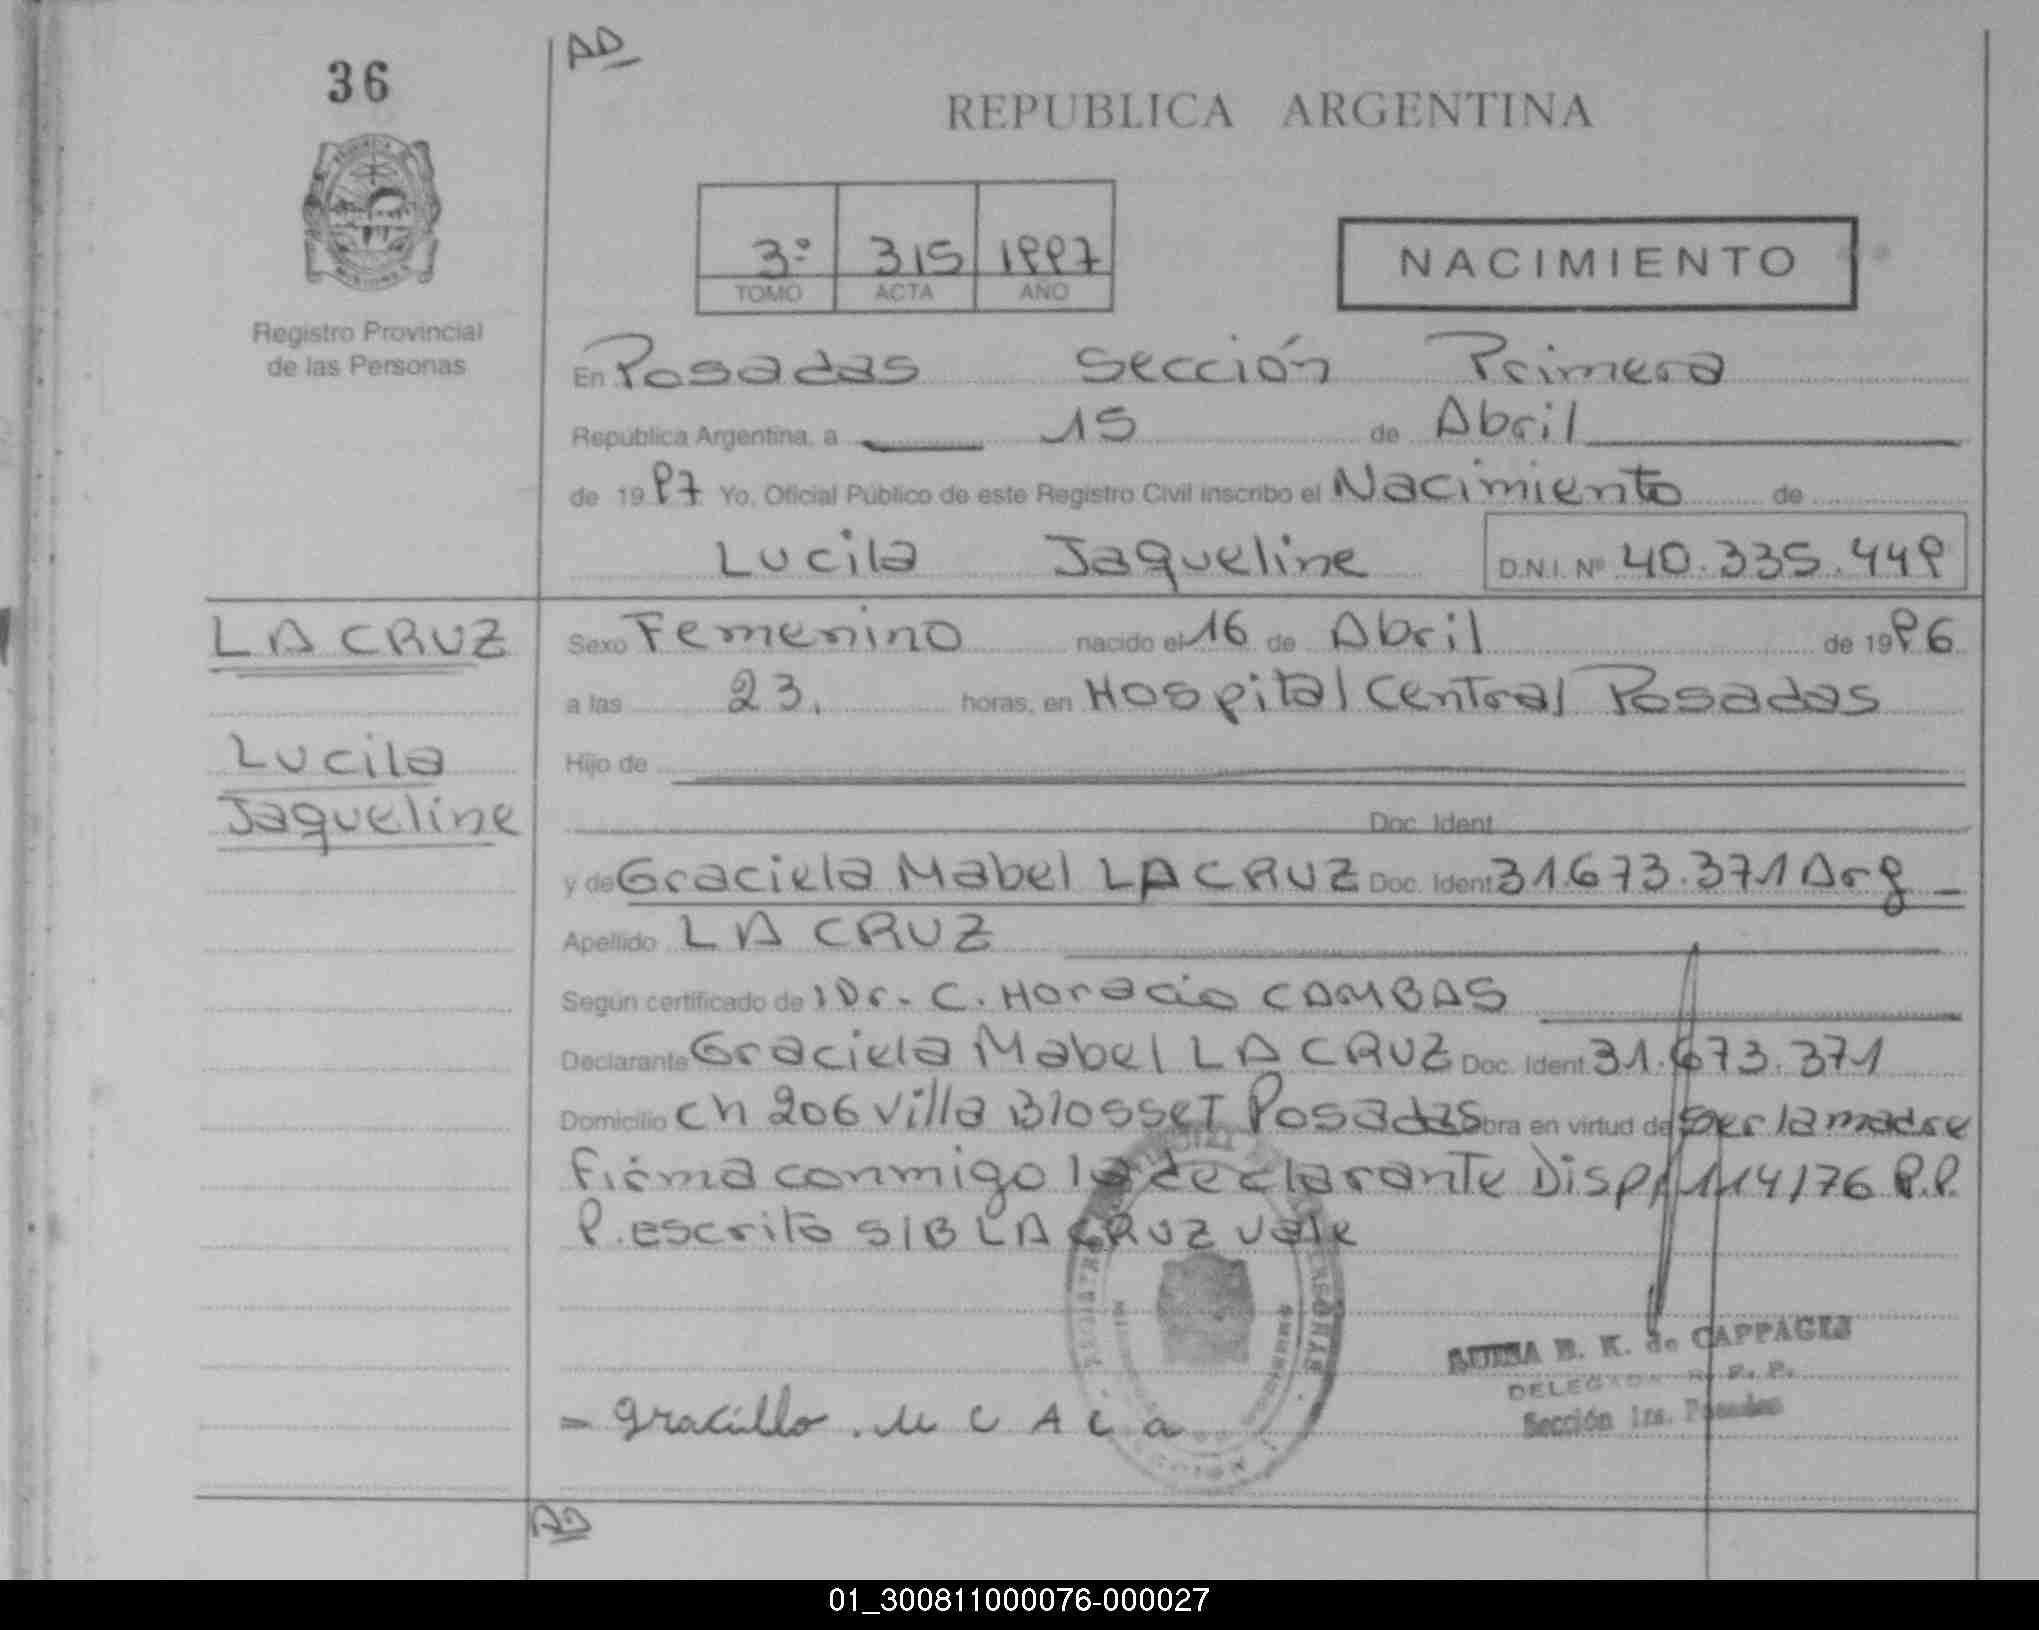 AD
36
REPUBLICA ARGENTINA
3º 315 1997
TOMO ACTA AÑO
NACIMIENTO
Registro Provincial
de las Personas
En Posadas Sección Primera
República Argentina, a 15 de Abril
de 1997 Yo, Oficial Público de este Registro Civil inscribo el Nacimiento de
Lucila Jaqueline D.N.I. Nº 40.335.449
LA CRUZ
Lucila
Jaqueline
Sexo Femenino nacido el 16 de Abril de 1996
a las 23. horas, en Hospital Central Posadas
Hijo de
Doc. Ident.
y de Graciela Mabel LA CRUZ Doc. Ident 31.673.371 Arg
Apellido LA CRUZ
Según certificado de Dr. C. Horacio CAMBAS
Declarante Graciela Mabel LA CRUZ Doc. Ident. 31.673.371
Domicilio Ch 206 Villa Blosset Posadas obra en virtud de Ser la madre
Firma conmigo la declarante Disp. 114/76 R.P.
P. escrito S/B LA CRUZ vale
B. K. de CAPPAGLI
DELEGADA R. P. P.
Sección 1ra. Posadas
AD
01_300811000076-000027